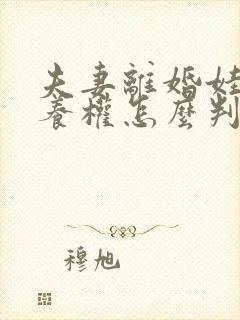 夫妻離婚娃
養權怎麼判
穆旭